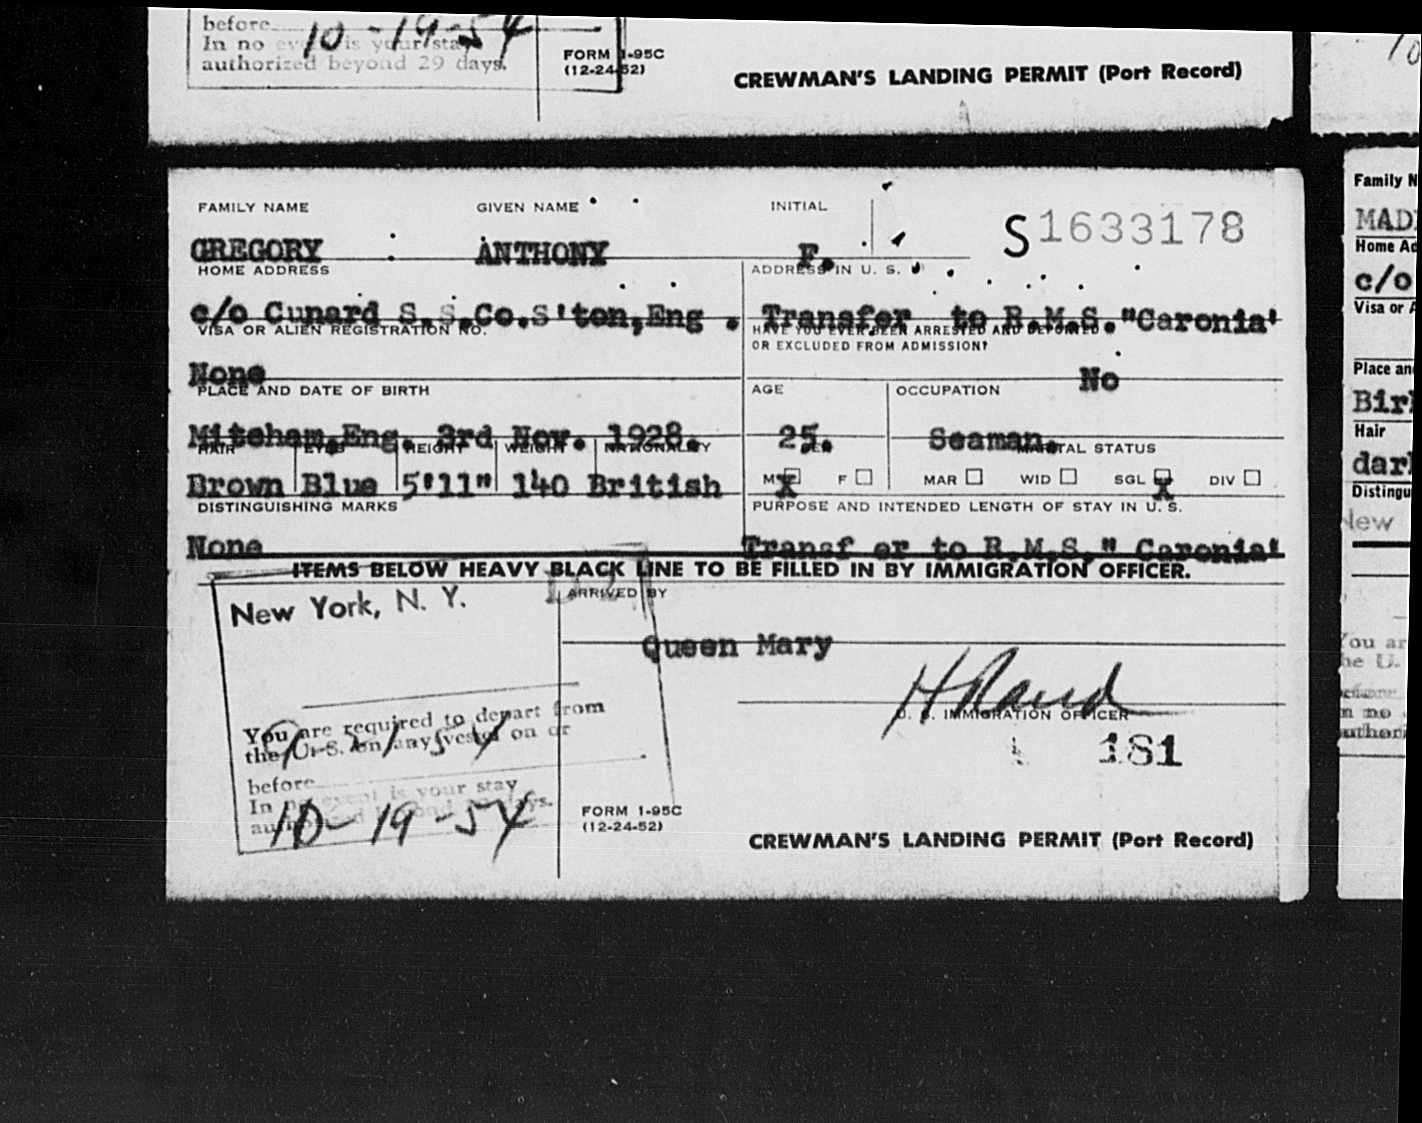 before 10-19-54
In no event is your stay
authorized beyond 29 days.
FORM I-95C
(12-24-52)
CREWMAN'S LANDING PERMIT (Port Record)
10
FAMILY NAME GIVEN NAME INITIAL
S1633178
GREGORY ANTHONY F.
HOME ADDRESS ADDRESS IN U. S.
c/o Cunard S.S.Co.S'ton,Eng. Transfer to R.M.S."Caronia'
VISA OR ALIEN REGISTRATION NO. HAVE YOU EVER BEEN ARRESTED AND DEPORTED
OR EXCLUDED FROM ADMISSION?
None No
PLACE AND DATE OF BIRTH AGE OCCUPATION
Mitcham,Eng. 3rd Nov. 1928. 25. Seaman.
HAIR EYES HEIGHT WEIGHT NATIONALITY SEX MARITAL STATUS
Brown Blue 5'11" 140 British M X F MAR WID SGL X DIV
DISTINGUISHING MARKS PURPOSE AND INTENDED LENGTH OF STAY IN U. S.
None Transf er to R.M.S." Caronia'
ITEMS BELOW HEAVY BLACK LINE TO BE FILLED IN BY IMMIGRATION OFFICER.
New York, N. Y.
ARRIVED BY
Queen Mary
U. S. IMMIGRATION OFFICER
You are required to depart from
the U. S. on any vessel on or
before
In no event is your stay
authorized beyond days.
10-19-54
181
FORM I-95C
(12-24-52)
CREWMAN'S LANDING PERMIT (Port Record)
Family N
MAD
Home Ad
c/o
Visa or A
Place an
Bir
Hair
dar
Distingu
New